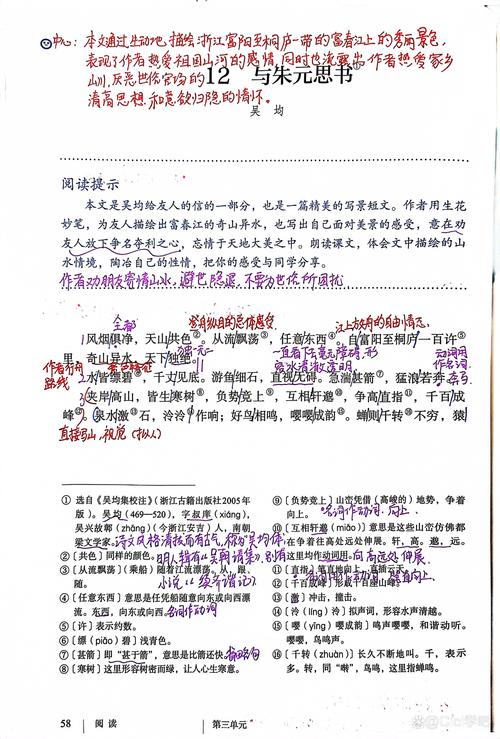 中心：本文通过生动地描绘浙江富阳至桐庐一带的富春江上的秀丽景色，
表现了作者热爱祖国山河的感情，同时也流露出作者热爱家乡
山川，厌恶世俗官场的
清高思想和意欲归隐的情怀。
12 与朱元思书①
吴 均
阅读提示
本文是吴均给友人的信的一部分，也是一篇精美的写景短文。作者用生花
妙笔，为友人描绘出富春江的奇山异水，也写出自己面对美景的感受，意在劝
友人放下争名夺利之心，忘情于天地大美之中。朗读课文，体会文中描绘的山
水情境，陶冶自己的性情，把你的感受与同学分享。
作者劝朋友寄情山水，避世隐退，不要为世俗所困扰
全都
总体感受
江上放舟的自由情志，
1风烟俱净，天山共色②。从流飘荡③，任意东西④。自富阳至桐庐一百许⑤
里，奇山异水，天下独绝。
一直看下去毫无障碍，形
容水清澈透明
作者行舟
路线
2水皆缥碧⑥，千丈见底。游鱼细石，直视无碍。急湍甚箭⑦，猛浪若奔。
3夹岸高山，皆生寒树⑧，负势竞上⑨，互相轩邈⑩，争高直指⑪，千百成
峰⑫。泉水激⑬石，泠泠⑭作响；好鸟相鸣，嘤嘤成韵⑮。蝉则千转⑯不穷，猿
直接写山，视觉（拟人）
① 选自《吴均集校注》（浙江古籍出版社2005年
版）。吴均（469—520），字叔庠（xiáng），
吴兴故鄣（zhāng）（今浙江安吉）人，南朝
梁文学家。诗文风格清拔而有古气，称为吴均体，
② 〔共色〕同样的颜色。明人辑有《吴朝请集》，别有
③ 〔从流飘荡〕（乘船）随着江流漂荡。从，跟、
随。小说《续齐谐记》。
④ 〔任意东西〕意思是任凭船随意向东或向西漂
流。东西，向东或向西。名词作动词
⑤ 〔许〕表示约数。
⑥ 〔缥（piǎo）碧〕浅青色。
⑦ 〔甚箭〕即“甚于箭”，意思是比箭还快。省略句
⑧ 〔寒树〕这里形容树密而绿，让人心生寒意。
⑨ 〔负势竞上〕山峦凭借（高峻的）地势，争着
向上。名词作动词，向上。
⑩ 〔互相轩邈（miǎo）〕意思是这些山峦仿佛都
在争着往高处远处伸展。轩，高。邈，远。
这里均作动词用。向高远处伸展
⑪ 〔直指〕笔直地向上，直插云天。
⑫ 〔千百成峰〕形成千百座山峰。
⑬ 〔激〕冲击，撞击。
⑭ 〔泠（líng）泠〕拟声词，形容水声清越。
⑮ 〔嘤（yīng）嘤成韵〕鸣声嘤嘤，和谐动听。
嘤嘤，鸟鸣声。
⑯ 〔千转（zhuàn）〕长久不断地叫。千，表示
多。转，同“啭”，鸟鸣，这里指蝉鸣。
58 阅读 第三单元